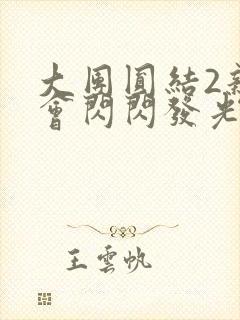 大團圓結2
會閃閃發光
王雲帆